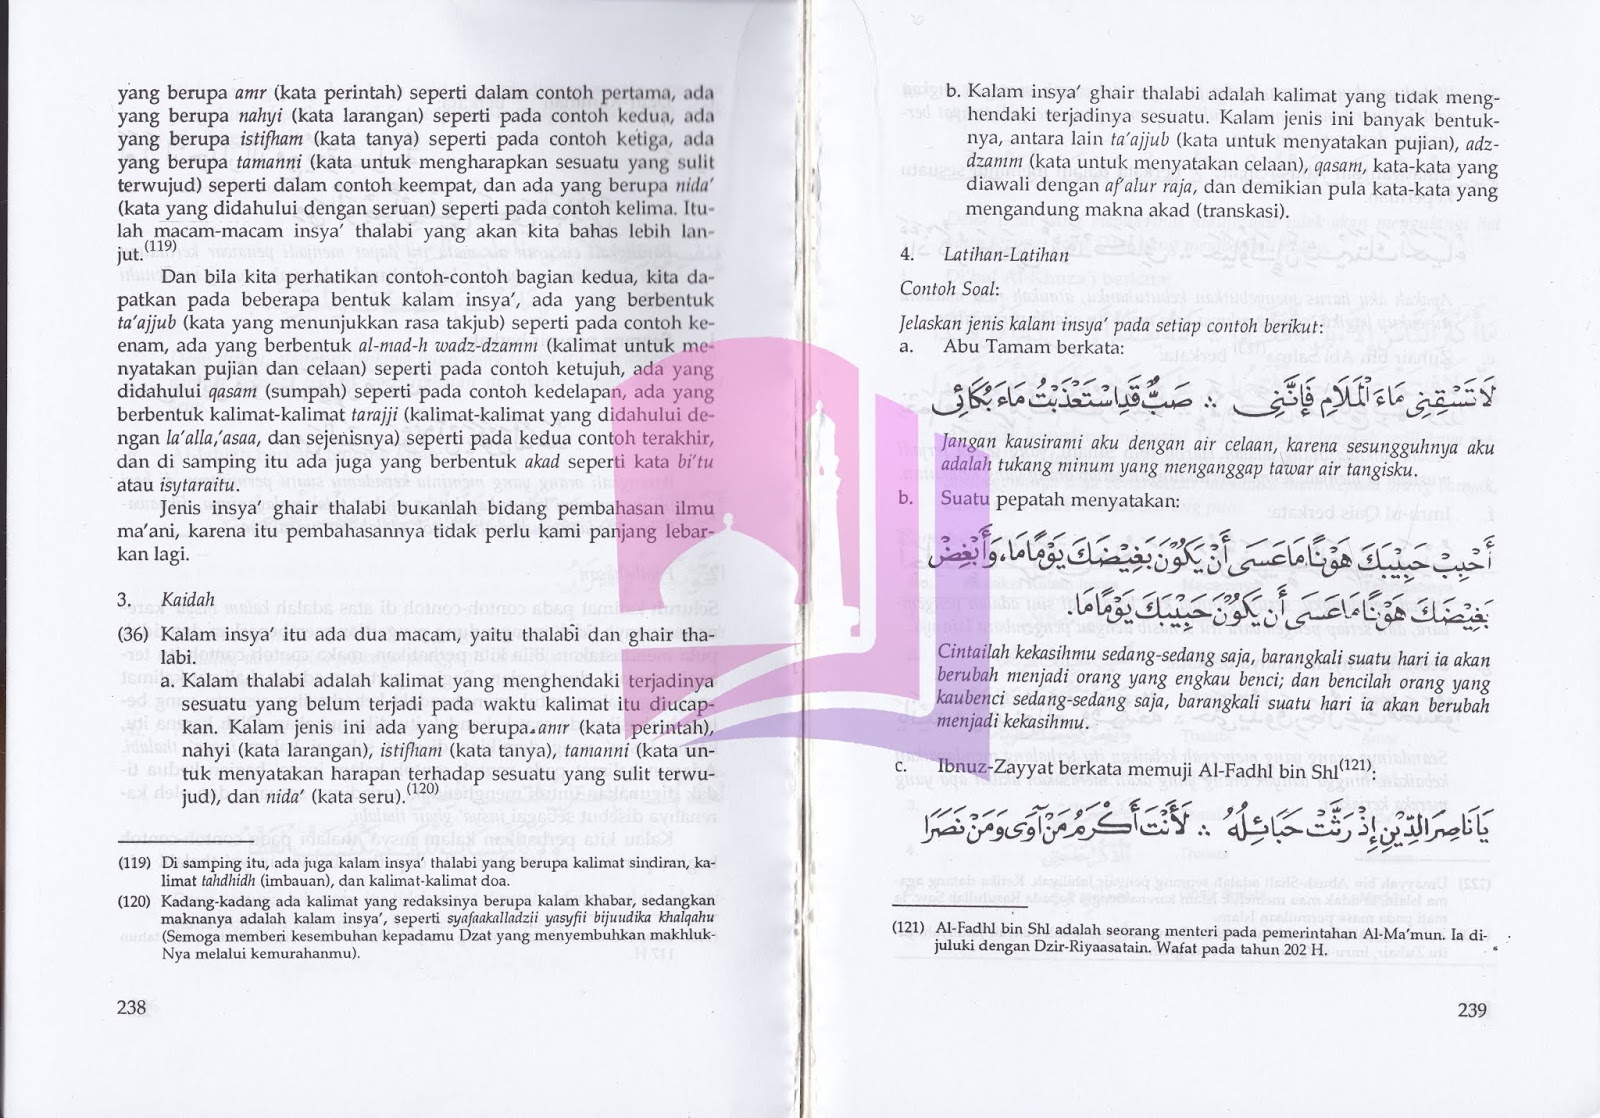 yang berupa amr (kata perintah) seperti dalam contoh pertama, ada
yang berupa nahyi (kata larangan) seperti pada contoh kedua, ada
yang berupa istifham (kata tanya) seperti pada contoh ketiga, ada
yang berupa tamanni (kata untuk mengharapkan sesuatu yang sulit
terwujud) seperti dalam contoh keempat, dan ada yang berupa nida'
(kata yang didahului dengan seruan) seperti pada contoh kelima. Itu-
lah macam-macam insya' thalabi yang akan kita bahas lebih lan-
jut.(119)
Dan bila kita perhatikan contoh-contoh bagian kedua, kita da-
patkan pada beberapa bentuk kalam insya', ada yang berbentuk
ta'ajjub (kata yang menunjukkan rasa takjub) seperti pada contoh ke-
enam, ada yang berbentuk al-mad-h wadz-dzamm (kalimat untuk me-
nyatakan pujian dan celaan) seperti pada contoh ketujuh, ada yang
didahului qasam (sumpah) seperti pada contoh kedelapan, ada yang
berbentuk kalimat-kalimat tarajji (kalimat-kalimat yang didahului de-
ngan la'alla,'asaa, dan sejenisnya) seperti pada kedua contoh terakhir,
dan di samping itu ada juga yang berbentuk akad seperti kata bi'tu
atau isytaraitu.
Jenis insya' ghair thalabi bukanlah bidang pembahasan ilmu
ma'ani, karena itu pembahasannya tidak perlu kami panjang lebar-
kan lagi.
3. Kaidah
(36) Kalam insya' itu ada dua macam, yaitu thalabi dan ghair tha-
labi.
a. Kalam thalabi adalah kalimat yang menghendaki terjadinya
sesuatu yang belum terjadi pada waktu kalimat itu diucap-
kan. Kalam jenis ini ada yang berupa amr (kata perintah),
nahyi (kata larangan), istifham (kata tanya), tamanni (kata un-
tuk menyatakan harapan terhadap sesuatu yang sulit terwu-
jud), dan nida' (kata seru).(120)
(119) Di samping itu, ada juga kalam insya' thalabi yang berupa kalimat sindiran, ka-
limat tahdhidh (imbauan), dan kalimat-kalimat doa.
(120) Kadang-kadang ada kalimat yang redaksinya berupa kalam khabar, sedangkan
maknanya adalah kalam insya', seperti syafaakalladzii yasyfii bijuudika khalqahu
(Semoga memberi kesembuhan kepadamu Dzat yang menyembuhkan makhluk-
Nya melalui kemurahanmu).
238
b. Kalam insya' ghair thalabi adalah kalimat yang tidak meng-
hendaki terjadinya sesuatu. Kalam jenis ini banyak bentuk-
nya, antara lain ta'ajjub (kata untuk menyatakan pujian), adz-
dzamm (kata untuk menyatakan celaan), qasam, kata-kata yang
diawali dengan af'alur raja, dan demikian pula kata-kata yang
mengandung makna akad (transkasi).
4. Latihan-Latihan
Contoh Soal:
Jelaskan jenis kalam insya' pada setiap contoh berikut:
a. Abu Tamam berkata:
لَا تَسْقِنِي مَاءَ الْمَلَامِ فَإِنَّنِي ∴ صَبٌّ قَدِ اسْتَعْذَبْتُ مَاءَ بُكَائِي
Jangan kausirami aku dengan air celaan, karena sesungguhnya aku
adalah tukang minum yang menganggap tawar air tangisku.
b. Suatu pepatah menyatakan:
أَحْبِبْ حَبِيْبَكَ هَوْنًا مَا عَسَى أَنْ يَكُوْنَ بَغِيْضَكَ يَوْمًا مَا، وَأَبْغِضْ
بَغِيْضَكَ هَوْنًا مَا عَسَى أَنْ يَكُوْنَ حَبِيْبَكَ يَوْمًا مَا.
Cintailah kekasihmu sedang-sedang saja, barangkali suatu hari ia akan
berubah menjadi orang yang engkau benci; dan bencilah orang yang
kaubenci sedang-sedang saja, barangkali suatu hari ia akan berubah
menjadi kekasihmu.
c. Ibnuz-Zayyat berkata memuji Al-Fadhl bin Shl(121):
يَا نَاصِرَ الدِّيْنِ إِذْ رَثَّتْ حَبَائِلُهُ ∴ لَأَنْتَ أَكْرَمُ مَنْ آوَى وَمَنْ نَصَرَا
(121) Al-Fadhl bin Shl adalah seorang menteri pada pemerintahan Al-Ma'mun. Ia di-
juluki dengan Dzir-Riyaasatain. Wafat pada tahun 202 H.
239